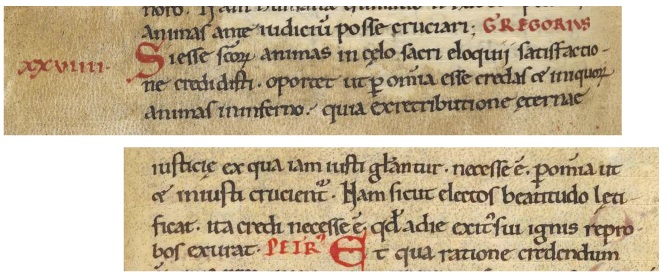 animas ante iudiciū posse cruciari; GREGORIVS
xxviiii. Si esse scōꝝ animas in cęlo sacri eloquii satisfactio-
ne credidisti. oportet ut ꝑ om̄ia esse credas & iniquoꝝ
animas in inferno. quia ex retributione eternae
iusticię ex qua iam iusti gl̄antur. necesse ē. ꝑ om̄ia ut
& iniusti crucient᷒. Nam sicut electos beatitudo leti
ficat. ita credi necesse ē, qd̄ a die exit᷒ sui ignis repro-
bos exurat. PETR᷒ Et qua ratione credendum